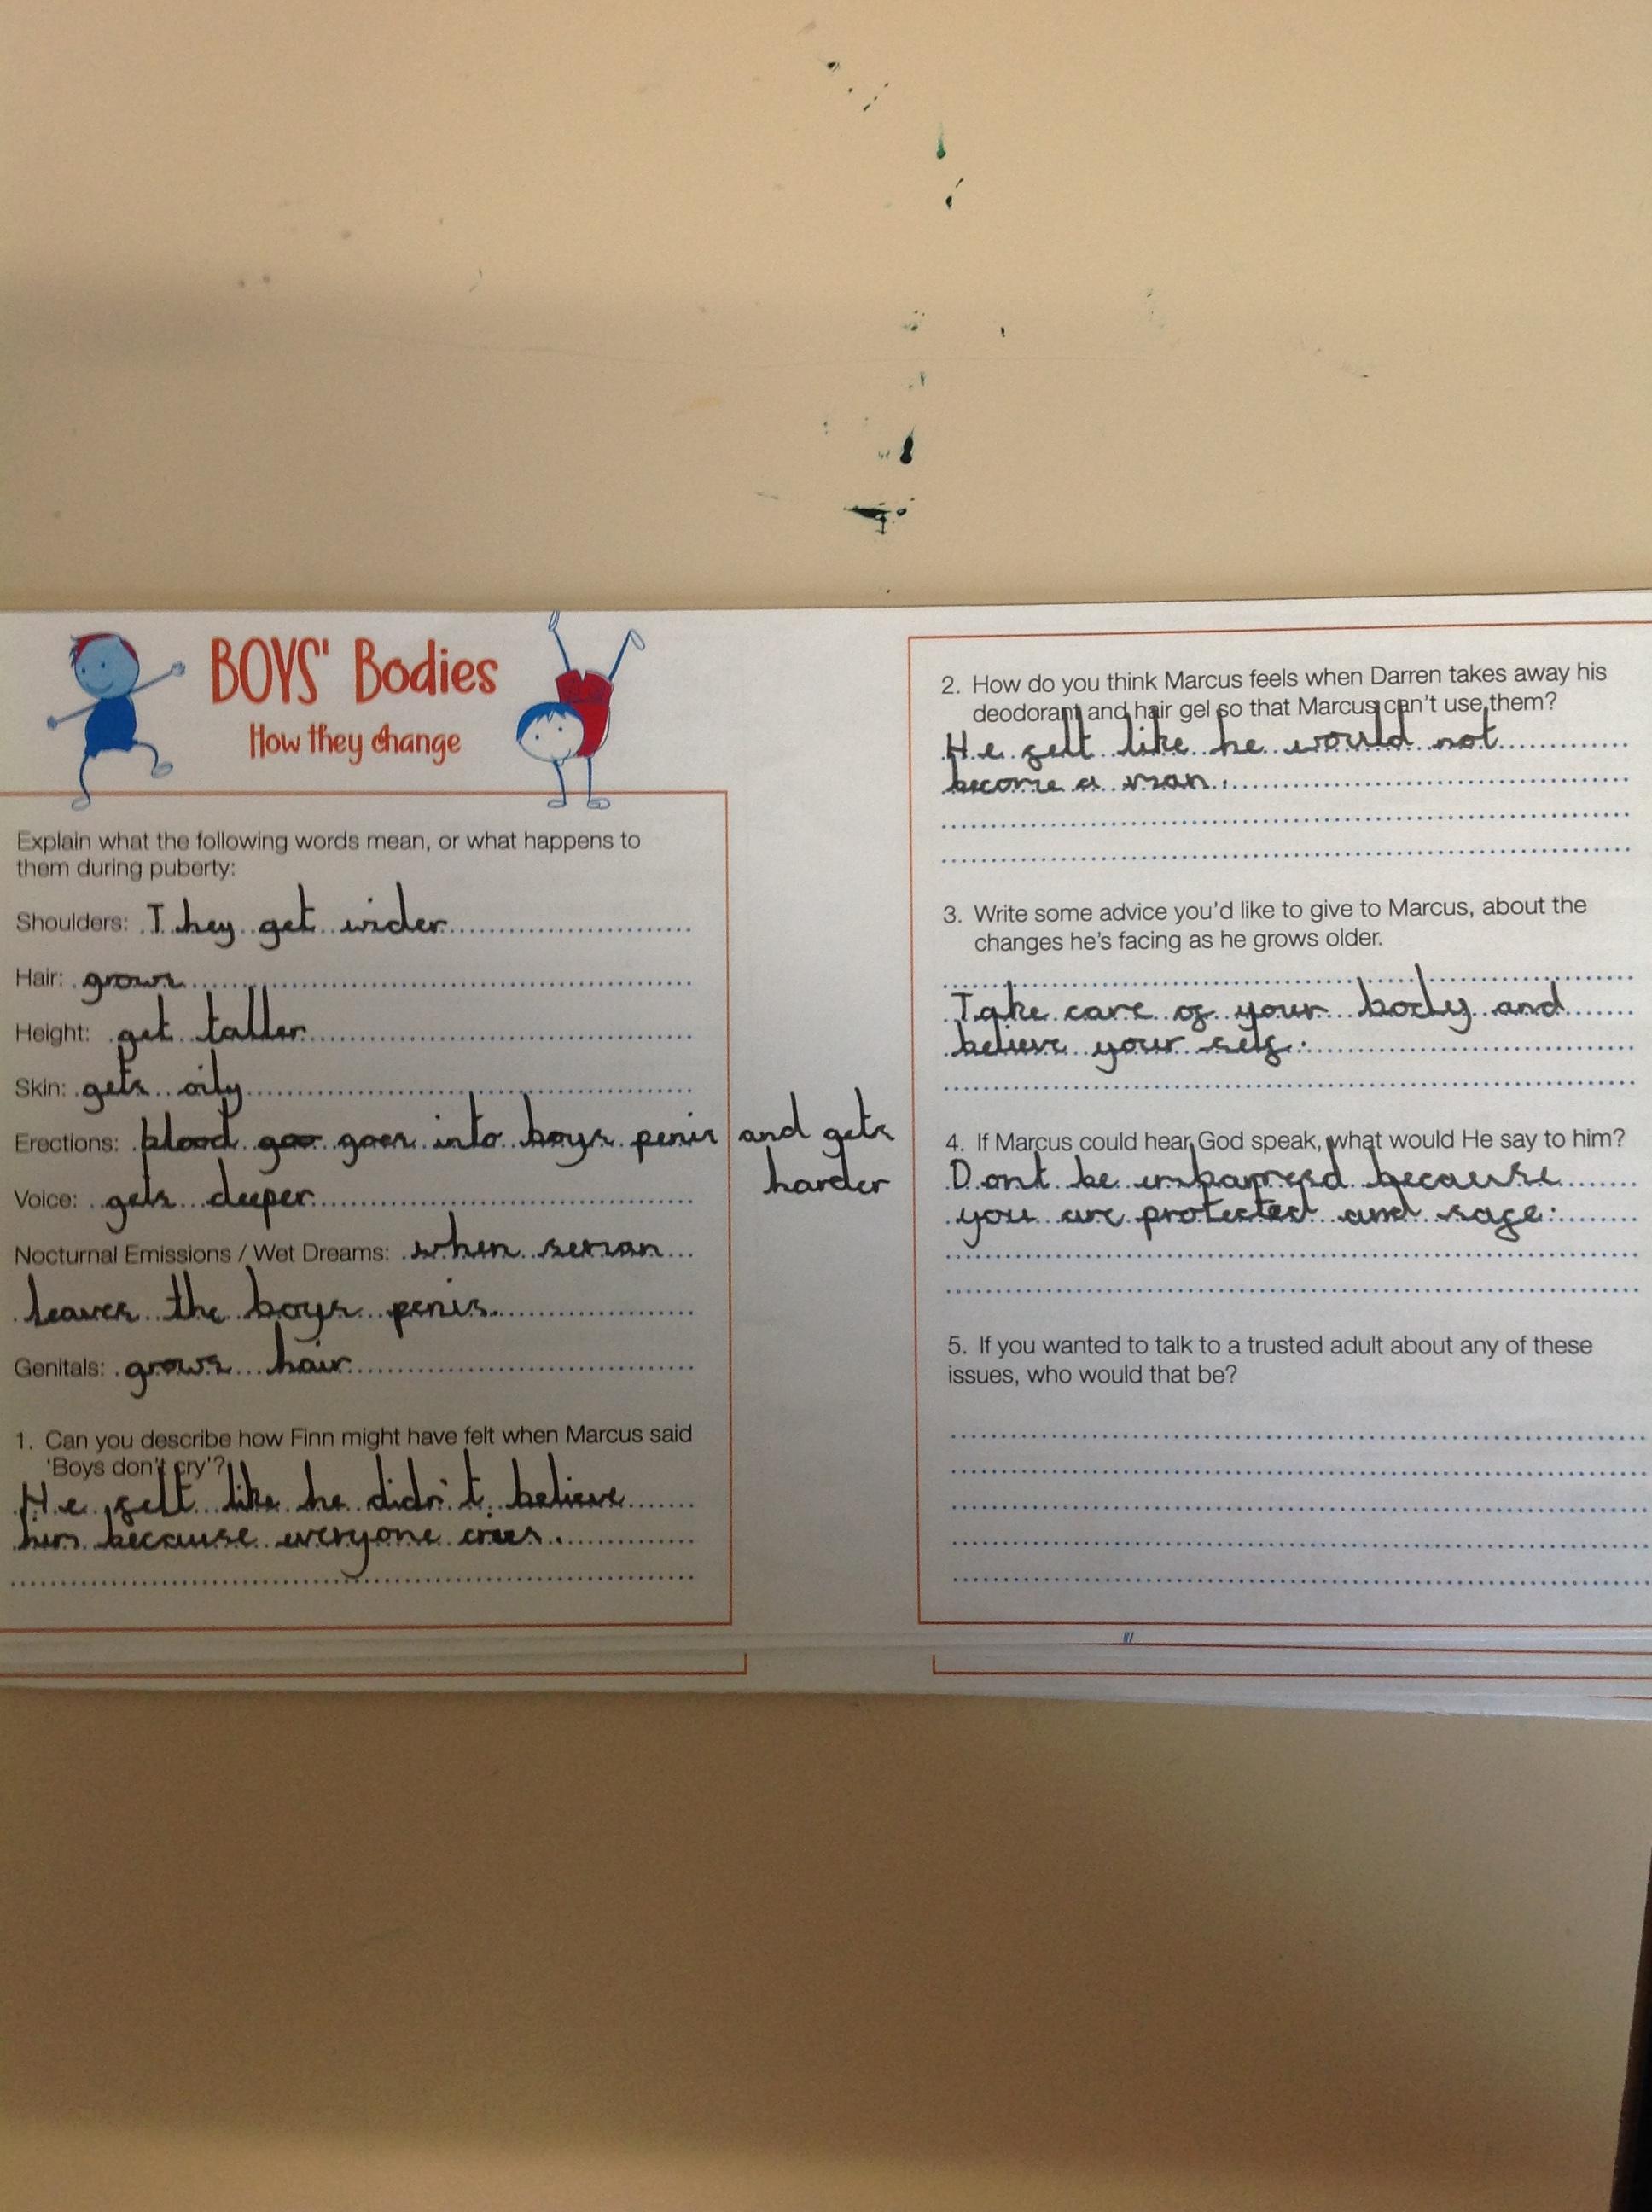 BOYS' Bodies
How they change
Explain what the following words mean, or what happens to
them during puberty:
Shoulders: They get wider
Hair: grows
Height: get taller
Skin: gets oily
Erections: blood goo goes into boys penis and gets
harder
Voice: gets deeper
Nocturnal Emissions / Wet Dreams: when seman
leaves the boys penis.
Genitals: grows hair
1. Can you describe how Finn might have felt when Marcus said
'Boys don't cry'?
He felt like he didn't believe
him because everyone cries.
2. How do you think Marcus feels when Darren takes away his
deodorant and hair gel so that Marcus can't use them?
He felt like he would not
become a man.
3. Write some advice you'd like to give to Marcus, about the
changes he's facing as he grows older.
Take care of your body and
believe your self.
4. If Marcus could hear God speak, what would He say to him?
Dont be because
you are protected and safe.
5. If you wanted to talk to a trusted adult about any of these
issues, who would that be?